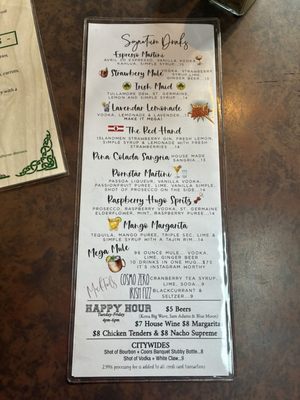 Signature Drinks
Espresso Martini
ESPRESSO, VANILLA VODKA
KAHLUA, SIMPLE SYRUP
Strawberry Mule
VODKA, STRAWBERRY
SYRUP, LIME, GINGER
BEER
Irish Maid
TULLAMORE DEW, ST. GERMAINE,
LEMON AND SIMPLE SYRUP
Lavendar Lemonade
VODKA, LEMONADE & LAVENDER
MAKE IT MEGA!
The Red Hand
ISLANDMEN STRAWBERRY GIN, FRESH LEMON,
SIMPLE SYRUP & LEMONADE WITH FRESH
STRAWBERRIES ...14
Pina Colada Sangria
HOUSE MADE
SANGRIA...13
Pornstar Martini
PASSOA LIQUEUR, VANILLA VODKA,
PASSIONFRUIT PUREE, LIME, VANILLA SIMPLE,
SHOT OF PROSECCO ON THE SIDE...14
Raspberry Hugo Spritz
PROSECCO, RASPBERRY VODKA, ST. GERMAINE
ELDERFLOWER, MINT, RASPBERRY PUREE
Mango Margarita
TEQUILA, MANGO PUREE, TRIPLE SEC, LIME &
SIMPLE SYRUP WITH A TAJIN RIM...14
Mega Mule
96 OUNCE MULE... VODKA,
LIME, GINGER BEER
10 DRINKS IN ONE MUG...$75
IT'S INSTAGRAM WORTHY
Mocktails
COSMO ZERO
CRANBERRY TEA SYRUP
LIME, SODA...8
IRISH FIZZ
BLACKCURRANT &
SELTZER...9
HAPPY HOUR
Tuesday-Friday
4pm-6pm
$5 Beers
(Kona Big Wave, Sam Adams & Blue Moon)
$7 House Wine $8 Margarita
$8 Chicken Tenders & $8 Nacho Supreme
CITYWIDES
Shot of Bourbon + Coors Banquet Stubby Bottle...9
Shot of Vodka + White Claw...9
2.99% processing fee is added to all credit card transactions